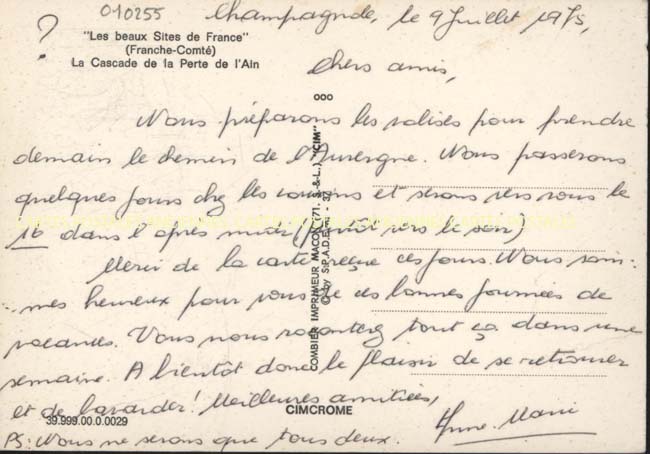 010255
Champagnole, le 9 Juillet 1975,
?
"Les beaux Sites de France"
(Franche-Comté)
La Cascade de la Perte de l'Ain
Chers amis,
ooo
Nous préparons les valises pour prendre
demain le chemin de l'Auvergne. Nous passerons
quelques jours chez les cousins et serons vers vous le
16 dans l'après midi (plutôt vers le soir)
Merci de la carte reçue ces jours. Nous som-
mes heureux pour vous de ces bonnes journées de
vacances. Vous nous raconterez tout ça dans une
semaine. A bientôt donc le plaisir de se retrouver
et de bavarder! Meilleures amitiées,
Anne-Marie
PS: Nous ne serons que tous deux.
COMBIER IMPRIMEUR MACON (71. S.-&-L.) "CIM"
© by S.P.A.D.E.M.
CIMCROME
39.999.00.0.0029